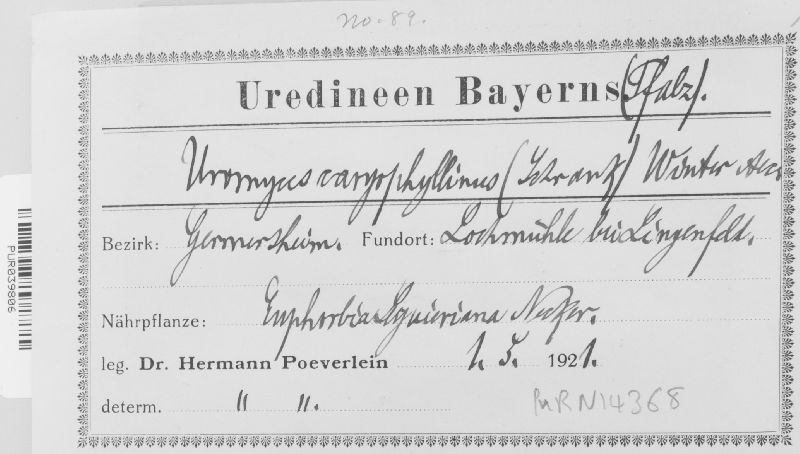 no. 89.
Uredineen Bayerns (Pfalz).
Uromyces caryophyllinus (Schrank) Winter Aec.
Bezirk: Germersheim. Fundort: Lochmühle bei Lingenfeld.
Nährpflanze: Euphorbia Seguieriana Necker.
leg. Dr. Hermann Poeverlein 1. 5. 1921.
determ. " ".
PUR N14368
PUR039806